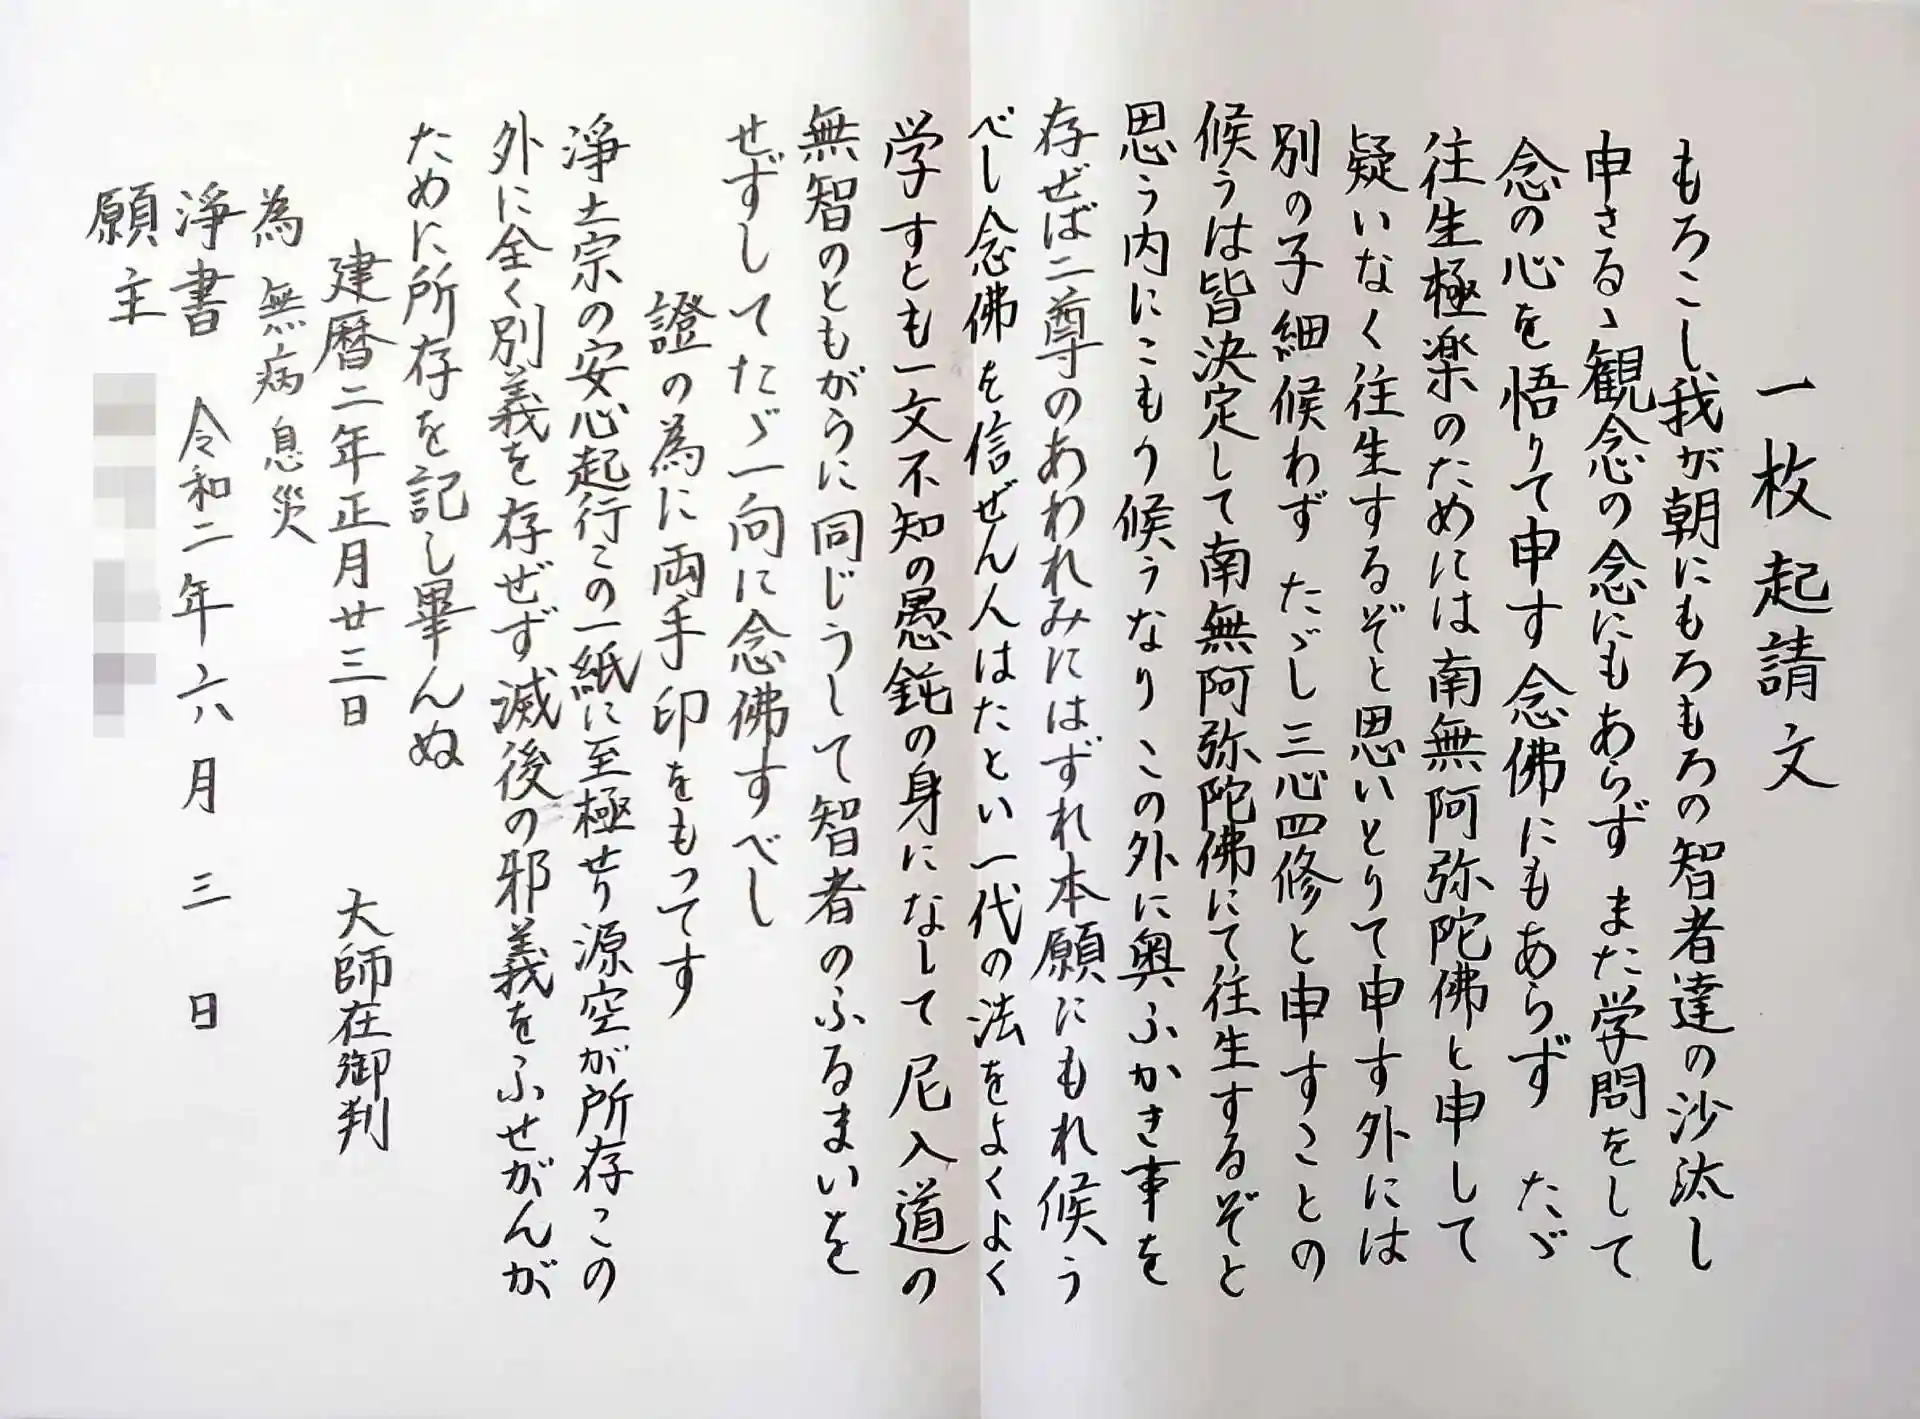 一枚起請文
もろこし我が朝にもろもろの智者達の沙汰し
申さるゝ観念の念にもあらず また学問をして
念の心を悟りて申す念佛にもあらず たゞ
往生極楽のためには南無阿弥陀佛と申して
疑いなく往生するぞと思いとりて申す外には
別の子細候わず たゞし三心四修と申すことの
候うは皆決定して南無阿弥陀佛にて往生するぞと
思う内にこもり候うなり この外に奥ふかき事を
存ぜば二尊のあわれみにはずれ本願にもれ候う
べし念佛を信ぜん人はたとい一代の法をよくよく
学すとも一文不知の愚鈍の身になして尼入道の
無智のともがらに同じうして智者のふるまいを
せずしてたゞ一向に念佛すべし
證の為に両手印をもってす
淨土宗の安心起行この一紙に至極せり源空が所存この
外に全く別義を存ぜず滅後の邪義をふせがんが
ために所存を記し畢んぬ
建暦二年正月廿三日 大師在御判
為 無病息災
淨書 令和二年六月三日
願主